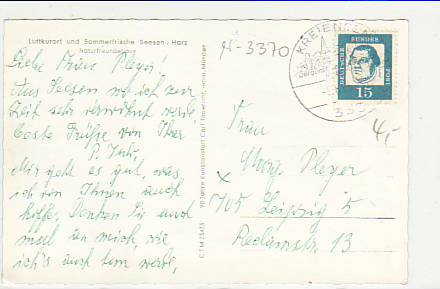 Luftkurort und Sommerfrische Seesen/Harz
Naturfreundehaus
Liebe Frau Pleyer!
Aus Seesen wo ich zur
Zeit sehr verwöhnt werde
beste Grüße von Ihrer
Mir geht es gut, was
ich von Ihnen auch
hoffe. Denken Sie auch
mal an mich, wie
ich's auch tun werde.
90 Jahre Kunstanstalt Carl Thoericht, Hann. Münden
C T M 23473
3370
KREIENSEN
DEUTSCHE
BUNDES
POST
15
4,-
Frau
Marg. Pleyer
x
705 Leipzig 5
Reclamstr. 13